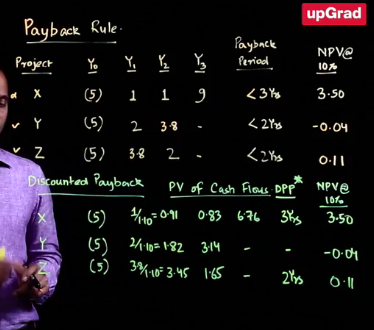 upGrad
Payback Rule.
Project Y0 Y1 Y2 Y3 Payback Period NPV@ 10%
X (5) 1 1 9 <3Yrs 3.50
Y (5) 2 3.8 - <2Yrs -0.04
Z (5) 3.8 2 - <2Yrs 0.11
Discounted Payback PV of Cash Flows DPP* NPV@ 10%
X (5) 1/1.10=0.91 0.83 6.76 3Yrs 3.50
Y (5) 2/1.10=1.82 3.14 - - -0.04
Z (5) 3.8/1.10=3.45 1.65 - 2Yrs 0.11